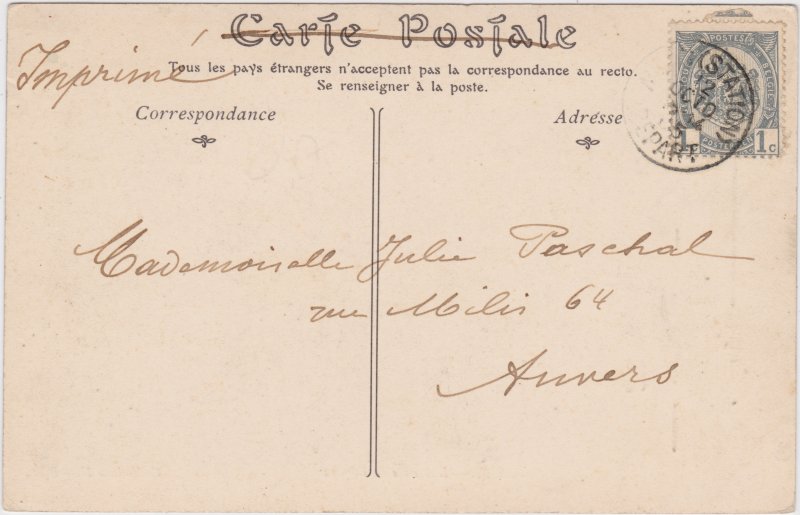 Carte Postale
Imprimé
Tous les pays étrangers n'acceptent pas la correspondance au recto.
Se renseigner à la poste.
Correspondance
Adresse
POSTES
1c
(STATION)
12
OCTO
DÉPART
Mademoiselle Julie Paschal
rue Milis 64
Anvers